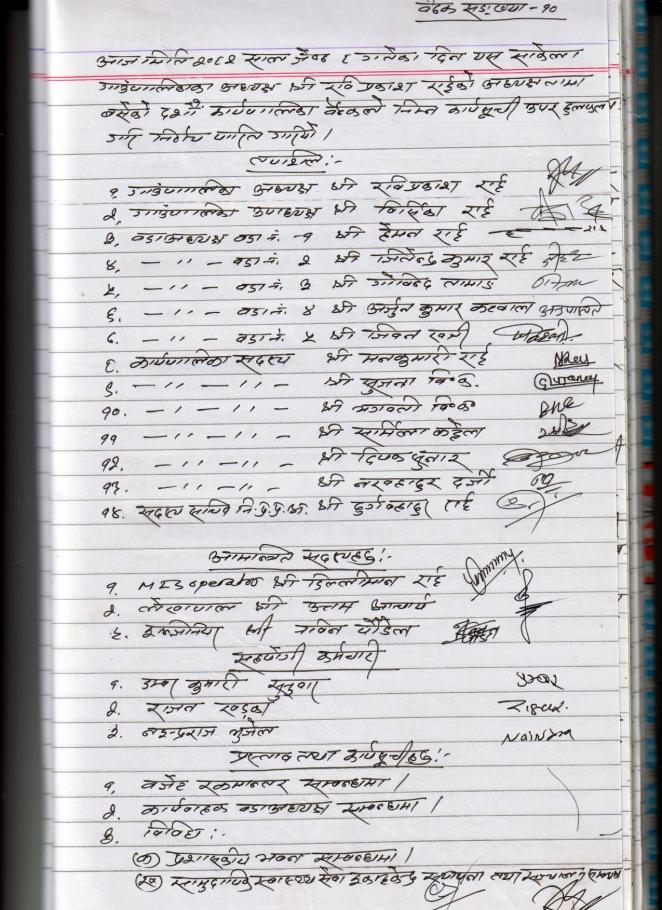 बैठक सङ्ख्या - १०
आज मिति २०८२ साल जेष्ठ ८ गतेका दिन यस साकेला
गाउँपालिकाका अध्यक्ष श्री रवि प्रकाश राईको अध्यक्षतामा
बसेको दशौं कार्यपालिका बैठकले निम्न कार्यसूची उपर छलफल
गरि निर्णय पारित गरियो ।
तपशिल :-
१. गाउँपालिका अध्यक्ष श्री रविप्रकाश राई
२. गाउँपालिका उपाध्यक्ष श्री राई
३. वडाअध्यक्ष वडा नं. -१ श्री हेमन राई
४. - '' - वडा नं. २ श्री जितेन्द्र कुमार राई
५. - '' - वडा नं. ३ श्री गोविन्द तामाङ
६. - '' - वडा नं. ४ श्री अर्जुन कुमार कटवाल अनुपस्थित
७. - '' - वडा नं. ५ श्री जिवन खत्री
८. कार्यपालिका सदस्य श्री मनकुमारी राई
९. - '' - '' - श्री सुजना वि.क.
१०. - '' - '' - श्री भगवती वि.क
११ - '' - '' - श्री सर्मिला कट्टेल
१२. - '' - '' - श्री दिपक सुनार
१३. - '' - '' - श्री नरबहादुर दर्जी
१४. सदस्य सचिव नि.प्र.प्र.अ. श्री दुर्गबहादुर राई
आमन्त्रित सदस्यहरु :-
१. MIS operator श्री डिल्लीमान राई
२. लेखापाल श्री उत्तम आचार्य
३. इन्जीनियर श्री नविन पौडेल
सहयोगी कर्मचारी
१. उमा कुमारी सुनुवार
२. राजन खड्का
३. नइन्द्रराज भुजेल Naindra
प्रस्ताव तथा कार्यसूचीहरु :-
१. बजेट रकमान्तर सम्बन्धमा ।
२. कार्यवाहक वडाअध्यक्ष सम्बन्धमा ।
३. विविध :-
(क) प्रशासकीय भवन सम्बन्धमा ।
(ख) सामुदायिक स्वास्थ्य सेवा इकाई केन्द्र स्थापना तथा सञ्चालन सम्बन्धमा